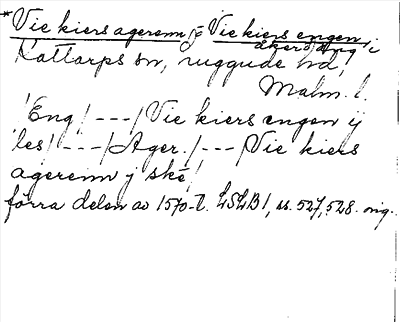 *Vie kiers agerenn j = Vie kiers engen
åker o. äng i
Kattarps sn, Luggude hd,
Malm. l.
'Eng/ --- / Vie kiers engen ij
les/ --- / Ager. / --- / Vie kiers
agerenn j ské'
förra delen av 1570-t. LSLB 1, ss. 527, 528. orig.